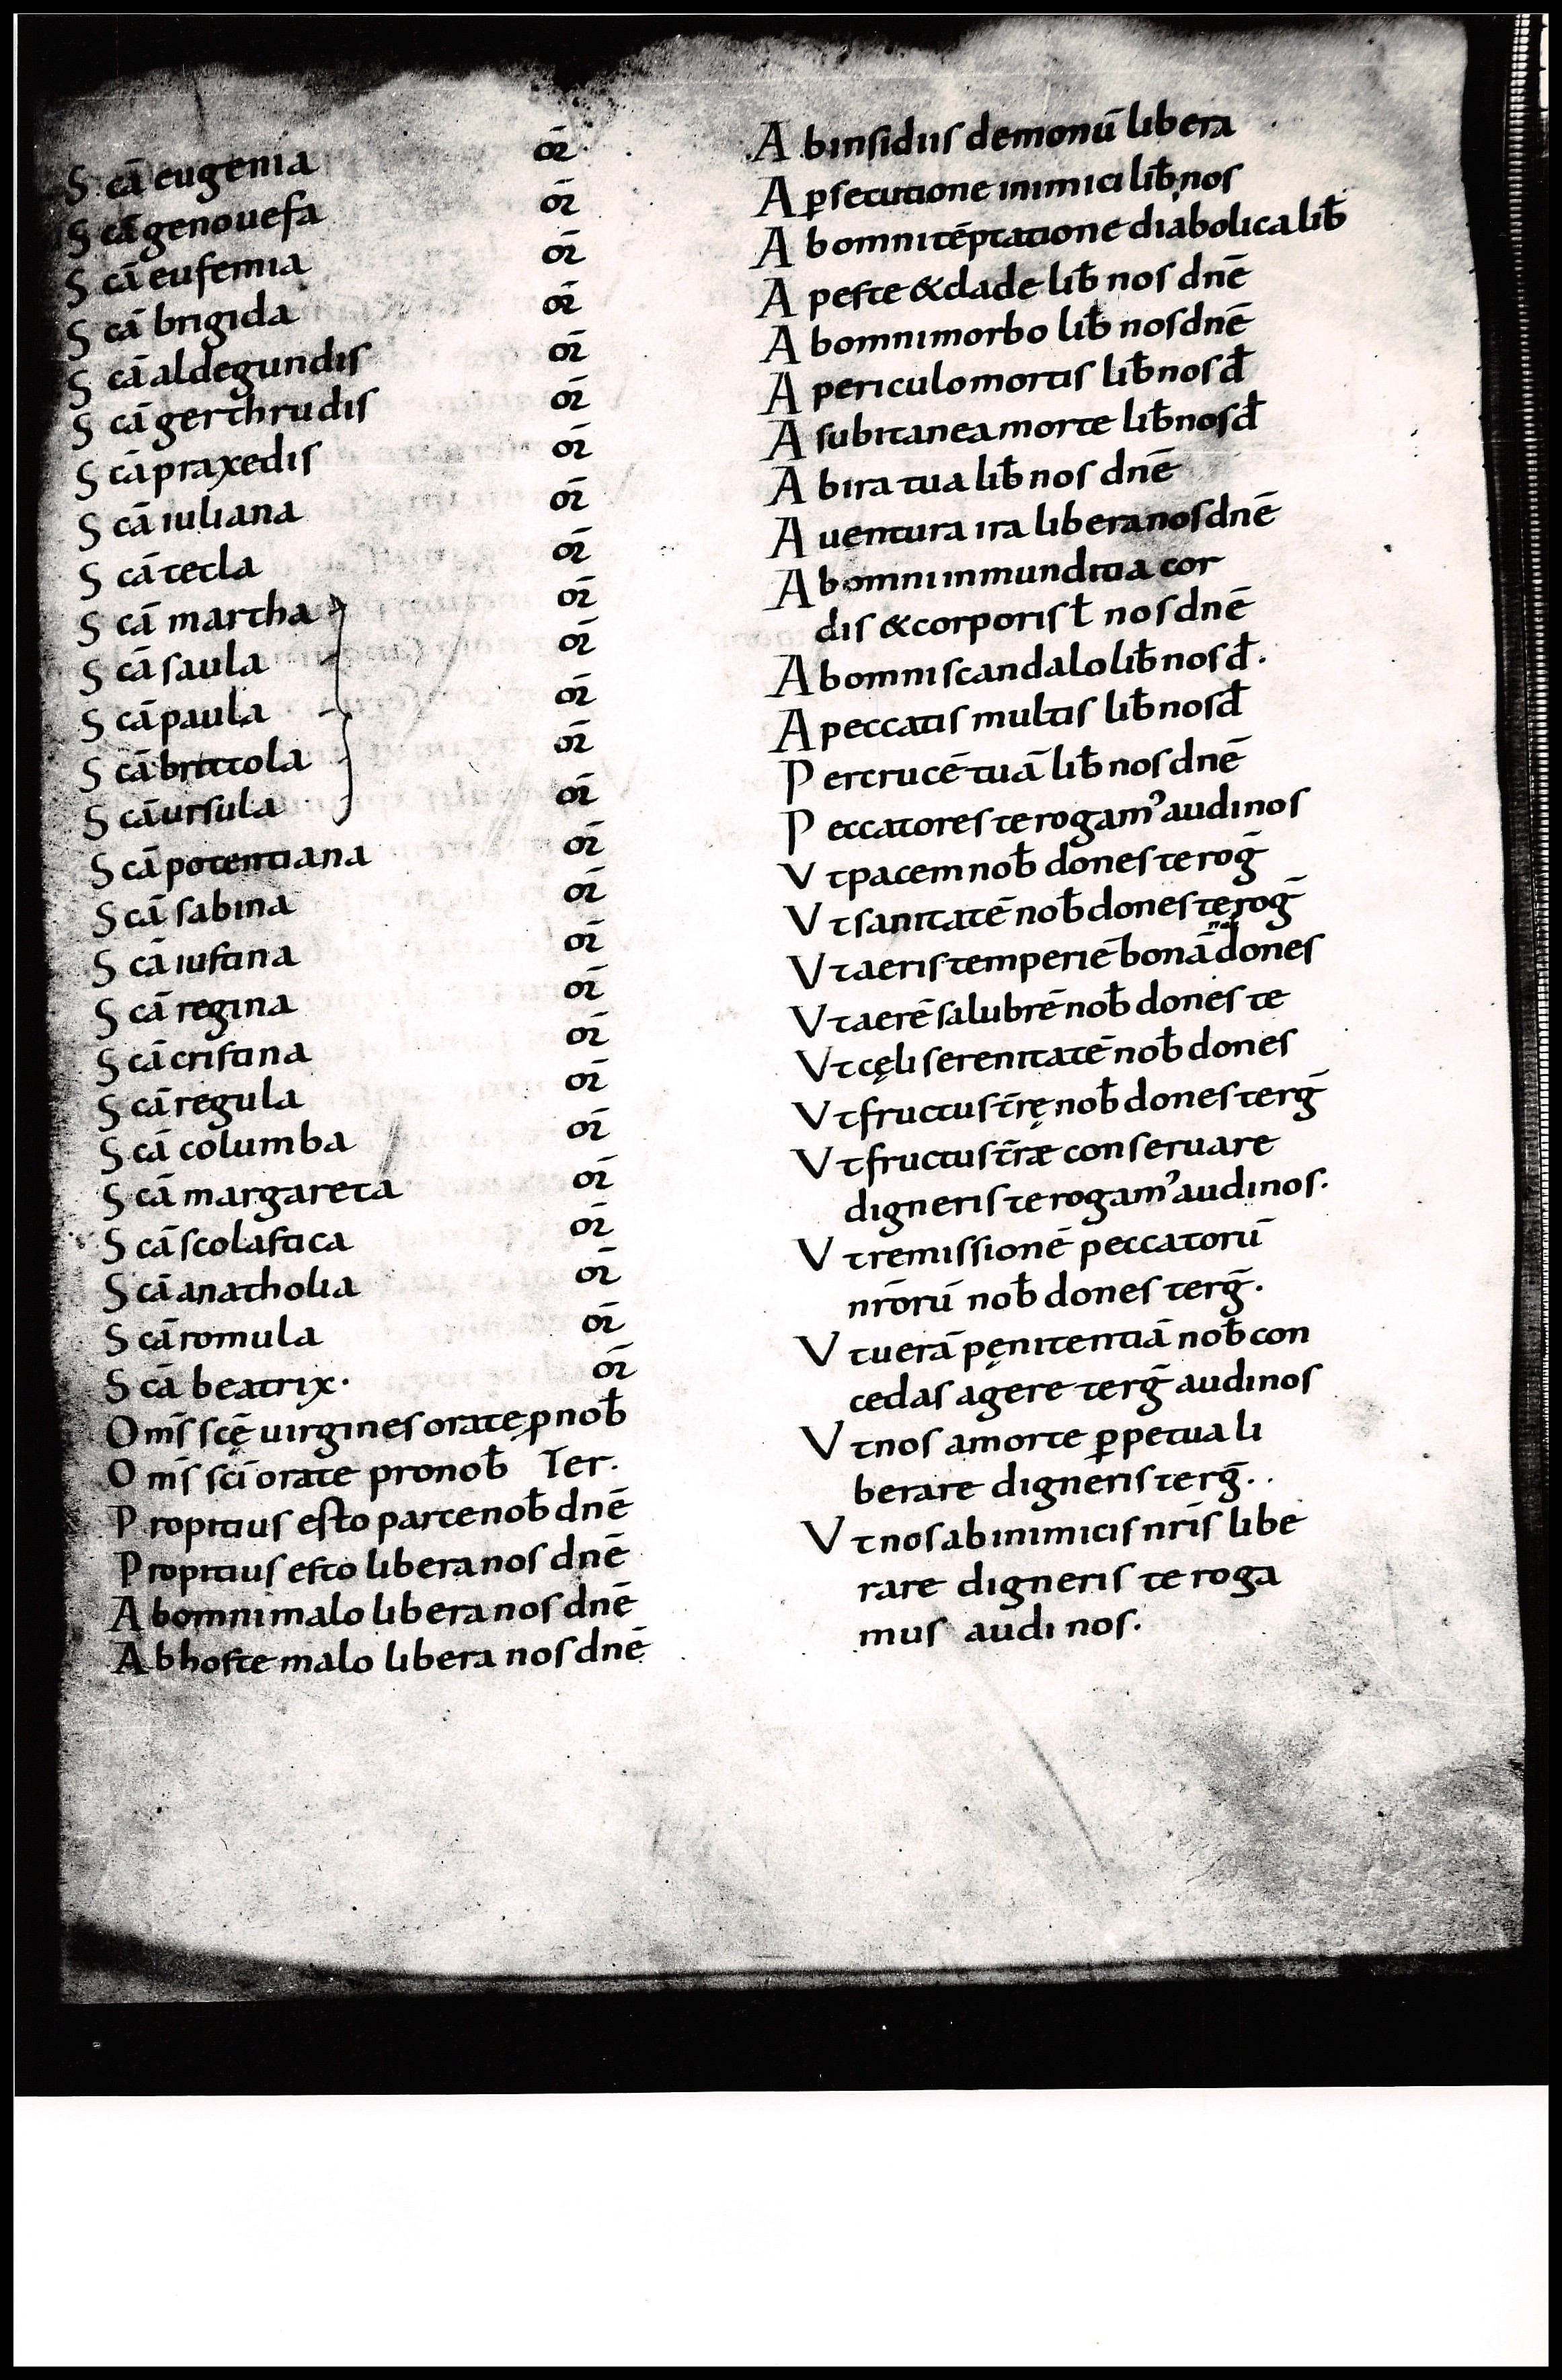 S cā eugenia or̄
S cā genouefa or̄
S cā eufemia or̄
S cā brigida or̄
S cā aldegundis or̄
S cā gerthrudis or̄
S cā praxedis or̄
S cā iuliana or̄
S cā tecla or̄
S cā martha or̄
S cā saula or̄
S cā paula or̄
S cā brittola or̄
S cā ursula or̄
S cā potentiana or̄
S cā sabina or̄
S cā iustina or̄
S cā regina or̄
S cā cristina or̄
S cā regula or̄
S cā columba or̄
S cā margareta or̄
S cā scolastica or̄
S cā anatholia or̄
S cā romula or̄
S cā beatrix· or̄
O ms̄ scę̄ uirgines orate ꝓ nob̄
O ms̄ scī orate pro nob̄ Ter·
P ropitius esto parce nob̄ dnē
P ropitius esto libera nos dnē
A b omni malo libera nos dnē
A b hoste malo libera nos dnē
A b insidiis demonū libera
A ꝑsecutione inimici lib̄ nos
A b omni tēptatione diabolica lib̄
A peste & clade lib̄ nos dnē
A b omni morbo lib̄ nos dnē
A periculo mortis lib̄ nos d̄
A subitanea morte lib̄ nos d̄
A b ira tua lib̄ nos dnē
A uentura ira libera nos dnē
A b omni inmunditia cor
dis & corporis l̄ nos dnē
A b omni scandalo lib̄ nos d̄·
A peccatis multis lib̄ nos d̄
P er crucē tuā lib̄ nos dnē
P eccatores te rogam᾽ audi nos
V t pacem nob̄ dones te roḡ
V t sanitatē nob̄ dones te roḡ
V t aeris temperiē bonā dones
V t aerē salubrē nob̄ dones te
V t cęli serenitatē nob̄ dones
V t fructus t̄rę nob̄ dones te rḡ
V t fructus t̄ræ conseruare
digneris te rogam᾽ audi nos·
V t remissionē peccatorū
nr̄orū nob̄ dones te rḡ·
V t uerā pęnitentiā nob̄ con
cedas agere te rḡ audi nos
V t nos a morte ꝑpetua li
berare digneris te rḡ··
V t nos ab inimicis nr̄is libe
rare digneris te roga
mus audi nos·